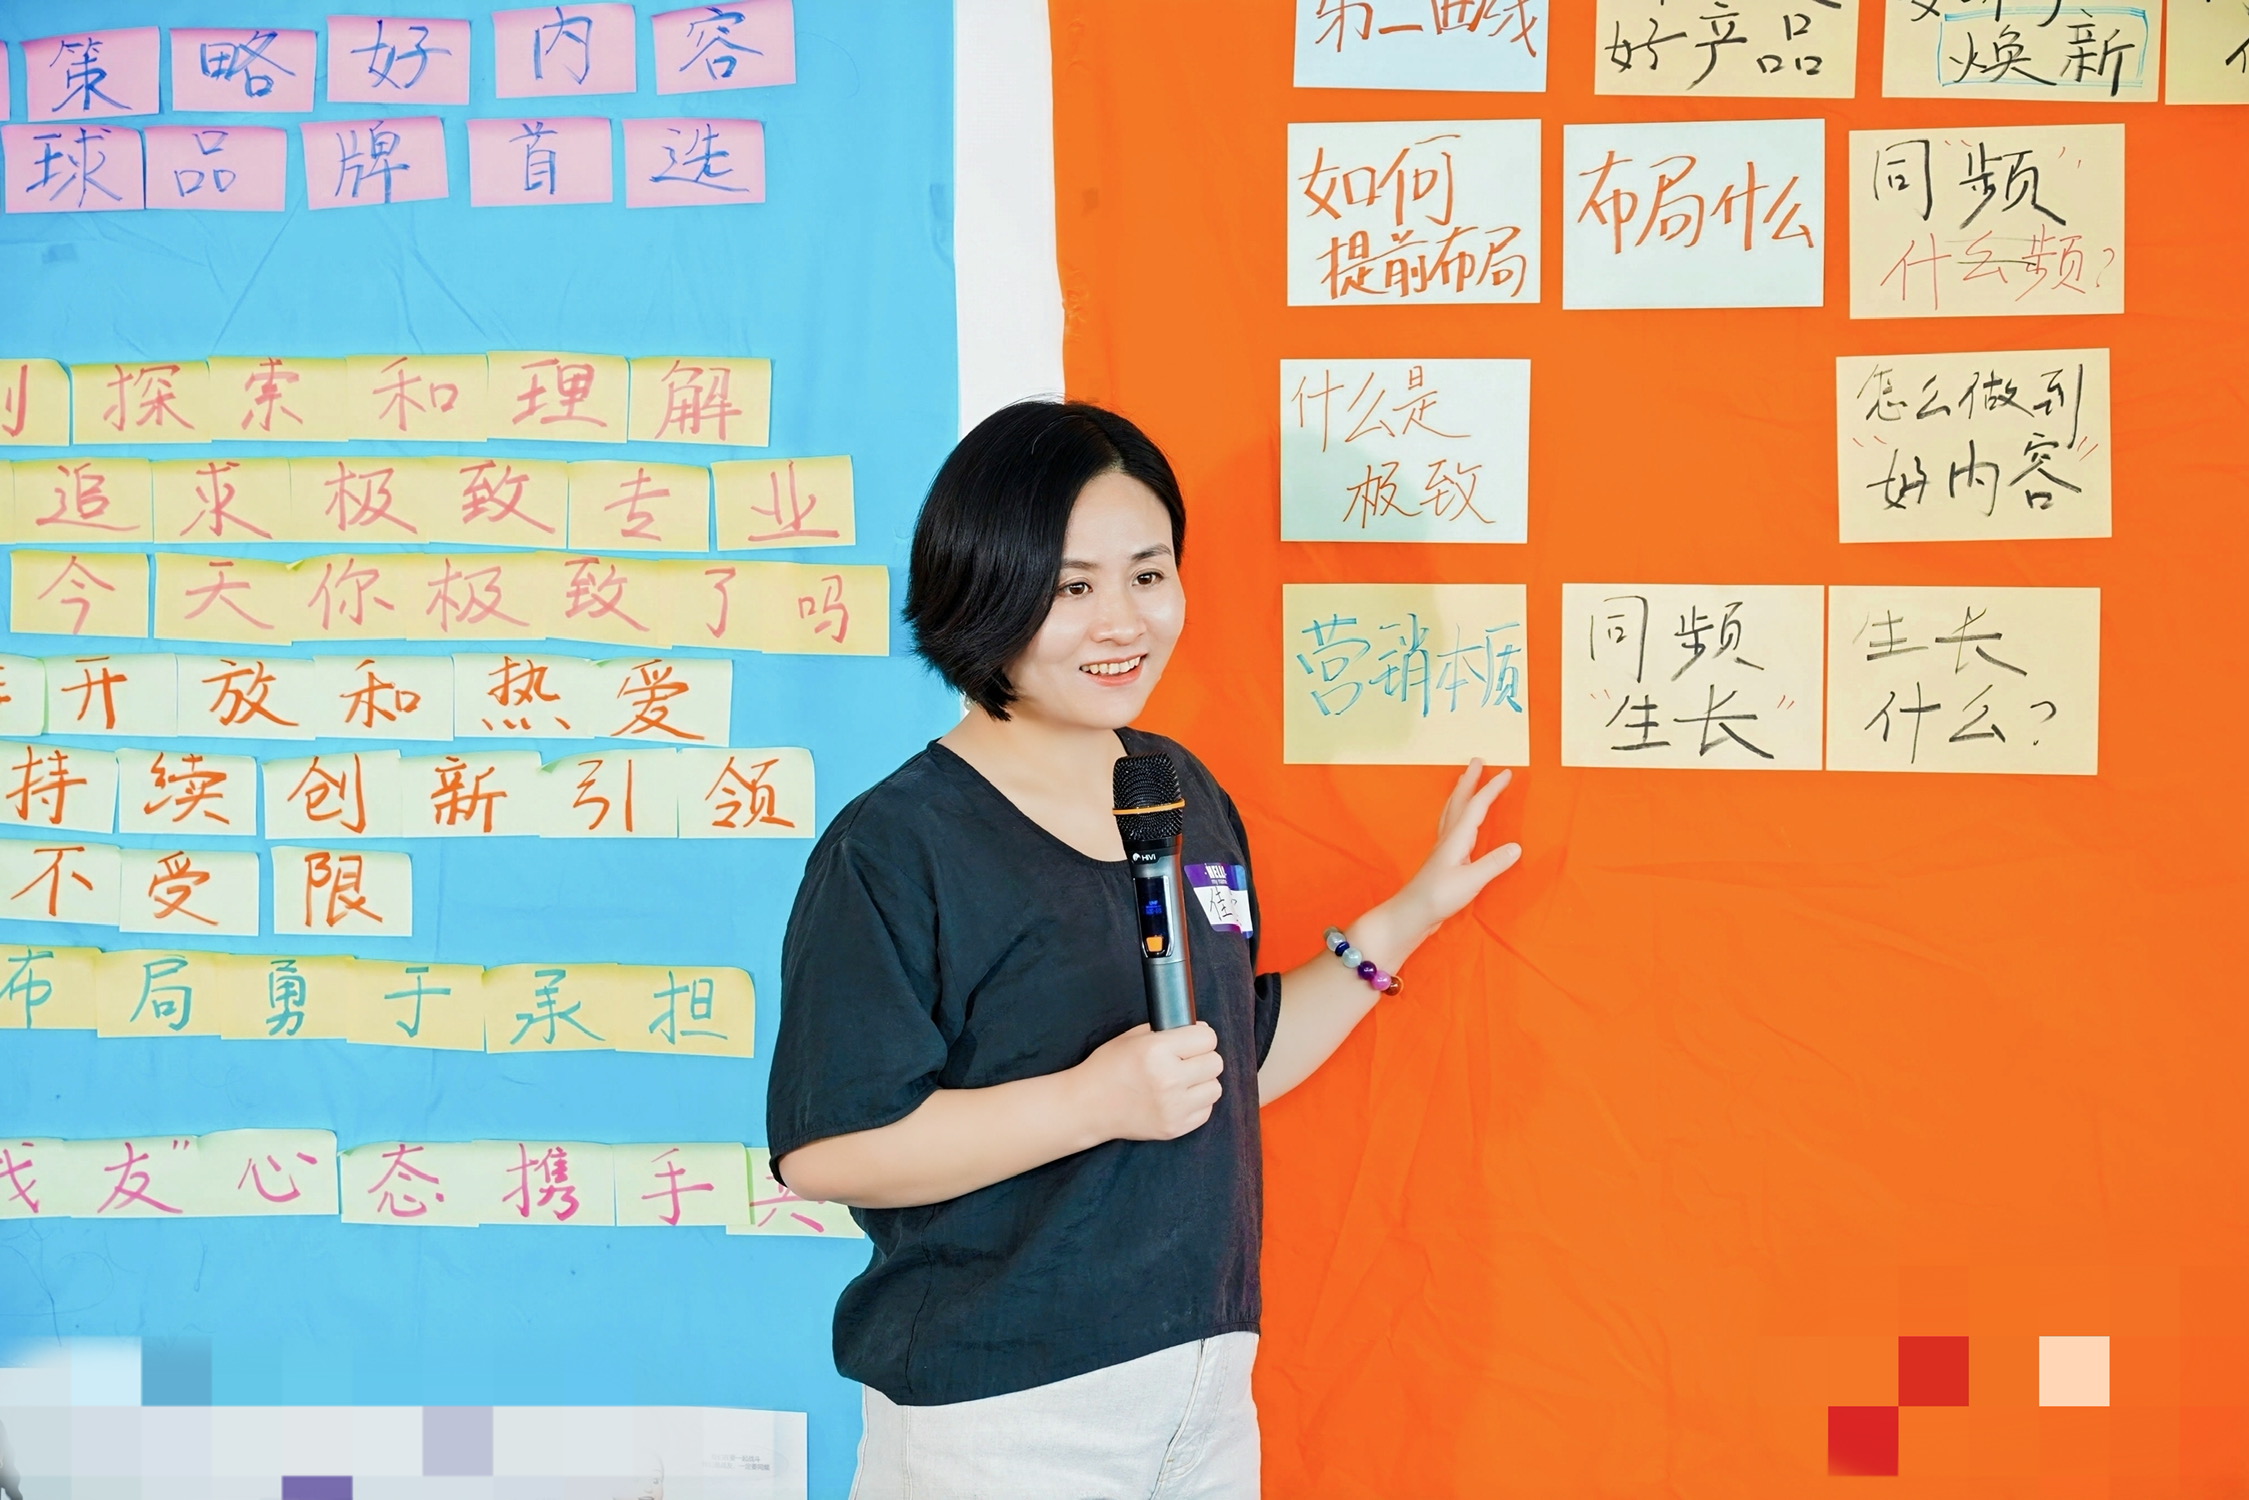 策略好内容
球品牌首选
探索和理解
追求极致专业
今天你极致了吗
开放和热爱
持续创新引领
不受限
布局勇于承担
友”心态携手共
第二曲线
好产品
焕新
如何
提前布局
布局什么
同“频”
什么频?
什么是
极致
怎么做到
“好内容”
营销本质
同频
“生长”
生长
什么?
HiVi
佳